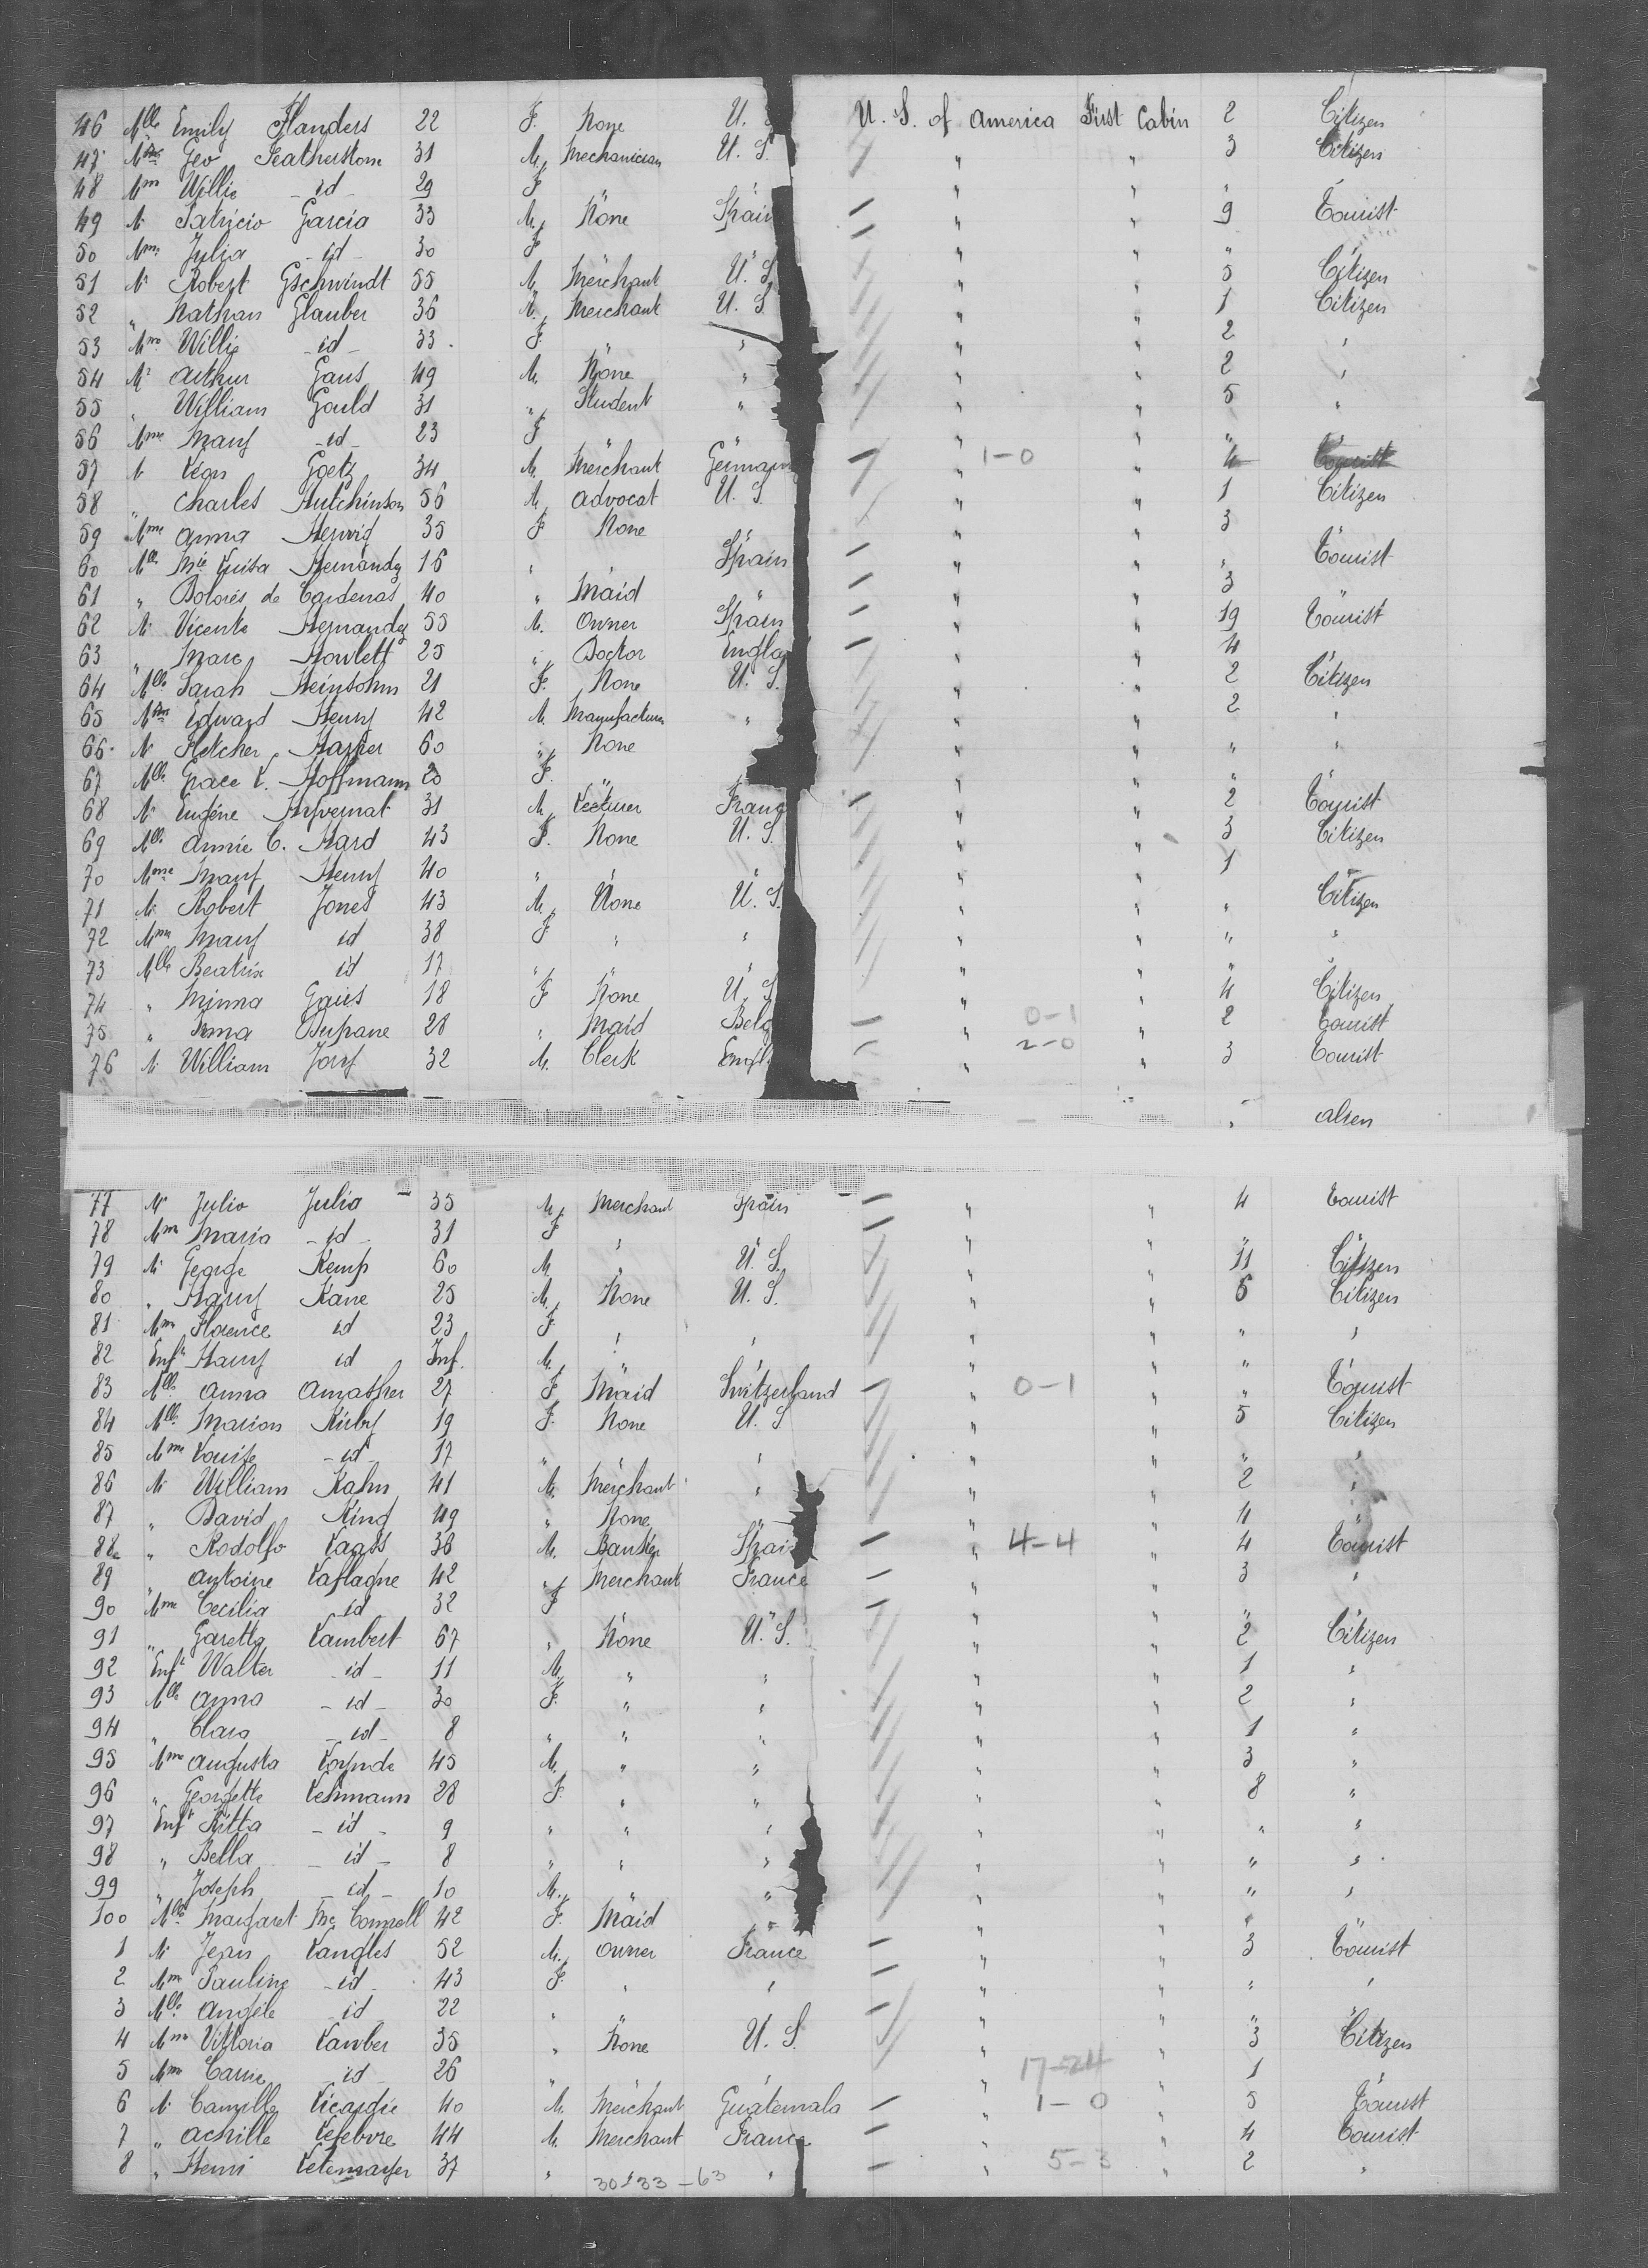 46 Mlle Emily Flanders 22 F. None U. S. U. S. of America First Cabin 2 Citizen
47 Geo Featherstone 31 M. Mechanician U. S. " " 3 Citizen
48 Mme Willie -id- 29 F " " "
49 M. Patricio Garcia 33 M. None Spain " " 9 Tourist
50 Mme Julia -id- 30 F " " "
51 M. Robert Gschwindt 55 M. Merchant U. S. " " 5 Citizen
52 " Nathan Glauber 36 M. Merchant U. S. " " 1 Citizen
53 Mme Willie -id- 33 F. " " " " 2 "
54 Mr Arthur Gans 49 M. None " " " 2 "
55 " William Gould 31 " Student " " " 5 "
56 Mme Mary -id- 23 F " " "
57 M Léon Goetz 34 M. Merchant German 1-0 " 4 Tourist
58 " Charles Hutchinson 56 M. Advocat U. S. " " 1 Citizen
59 Mme Anna 35 F None " " 3
60 Mlle Mie Luisa Hernandez 16 " Spain " " " Tourist
61 " Dolorés de Cardenas 40 " Maid " " 3
62 M. Vicente Hernandez 55 M. Owner Spain " " 19 Tourist
63 " Marc Howlett 25 " Doctor Engla " " 4
64 Mlle Sarah Heinsohn 21 F. None U. S. " " 2 Citizen
65 Edward Henry 42 M. Manufacturer " " " 2 "
66 M. Fletcher Harper 60 " None " " " "
67 Mlle Grace L. Hoffmann 20 F. " " " "
68 M. Eugène 31 M. Lecturer Franc " " 2 Tourist
69 Mlle Annie C. Hard 43 F. None U. S. " " 3 Citizen
70 Mme Mary Henry 40 " " " " " 1
71 M. Robert Jones 43 M. None U. S. " " " Citizen
72 Mme Mary id 38 F " " " " " "
73 Mlle Beatrix id 17 " " " " "
74 " Minna Gaus 18 F None U. S " " 4 Citizen
75 " Irma Dupane 28 " Maid Belg " 0-1 " 2 Tourist
76 M. William Jory 32 M. Clerk Engl " 2-0 " 3 Tourist
" Alien
77 Mr Julio Julia 35 M. Merchant Spain " " 4 Tourist
78 Mme Maria -id- 31 F " " " "
79 M. George Kemp 60 M. " U. S. " " 11 Citizen
80 " Harry Kane 25 M. None U. S. " " 6 Citizen
81 Mme Florence id 23 F " " " " " "
82 Enft Harry id Inf. M. " " " " "
83 Mlle Anna Amather 27 F Maid Switzerland " 0-1 " " Tourist
84 Mlle Marion Kirby 19 F. None U. S " " 5 Citizen
85 Mme Louise -id- 17 " " " " " "
86 M William Kahn 41 M. Merchant " " " 2 "
87 " David King 49 " None " " " 4 "
88 " Rodolfo 36 M. Banker Spain " 4-4 " 4 Tourist
89 " Antoine Laflagne 42 " Merchant France " " 3 "
90 Mme Cecilia id 32 F " " "
91 " Garetta Lambert 67 " None U. S. " " 2 Citizen
92 Enft Walter -id- 11 M. " " " " 1 "
93 Mlle Anna -id- 30 F. " " " " 2 "
94 " Clara -id- 8 " " " " " 1 "
95 Mme Augusta 45 M. " " " " 3 "
96 " Georgette Lehmann 28 F. " " " " 8 "
97 Enft Ritta -id- 9 " " " " " " "
98 " Bella -id- 8 " " " " " " "
99 " Joseph -id- 10 M. " " " " " "
100 Mlle Margaret Mc Connell 42 F. Maid " " " "
1 M. Jean Langles 52 M. Owner France " " 3 Tourist
2 Mme Pauline -id- 43 F. " " " " " "
3 Mlle Angèle id 22 " " " " "
4 Mme Vittoria Lamber 35 " None U. S. " " 3 Citizen
5 Mme Carrie id 26 " " " " 17-24 " 1
6 M. Camille Licardie 40 M. Merchant Guatemala " 1-0 " 5 Tourist
7 " Achille Lefebvre 44 M. Merchant France " " 4 Tourist
8 " Henri 37 " " " 5-3 " 2 "
30+33-63